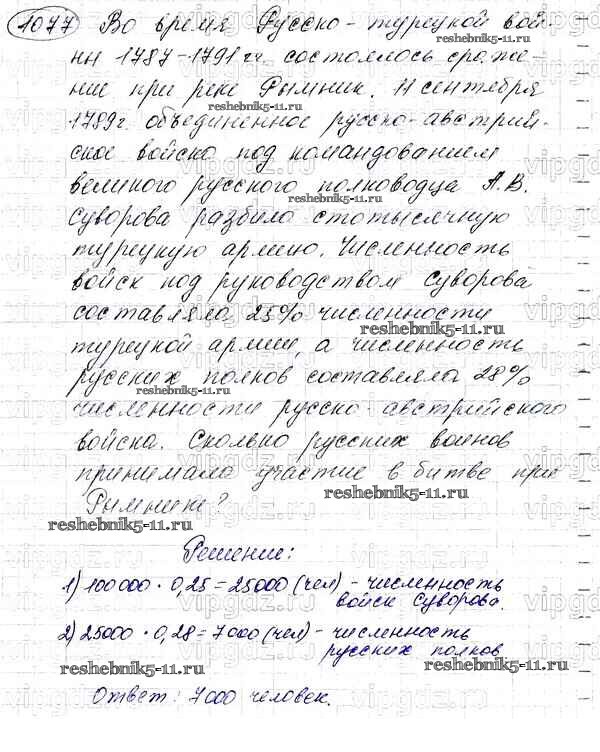 1077 Во время Русско-турецкой вой-
ны 1787-1791 гг. состоялось сраже-
ние при реке Рымник. 11 сентября
reshebnik5-11.ru
1789г. объединенное русско-австрий-
ское войско под командованием
великого русского полководца А.В.
reshebnik5-11.ru
Суворова разбило стотысячную
турецкую армию. Численность
войск под руководством Суворова
составляла 25% численности
reshebnik5-11.ru
турецкой армии, а численность
русских полков составляла 28%
численности русско-австрийского
войска. Сколько русских воинов
принимало участие в битве при
reshebnik5-11.ru
Рымнике?
reshebnik5-11.ru
Решение:
1) 100000 · 0,25 = 25000 (чел) - численность
войск Суворова.
2) 25000 · 0,28 = 7000 (чел) - численность
русских полков.
reshebnik5-11.ru
reshebnik5-11.ru
Ответ: 7000 человек.